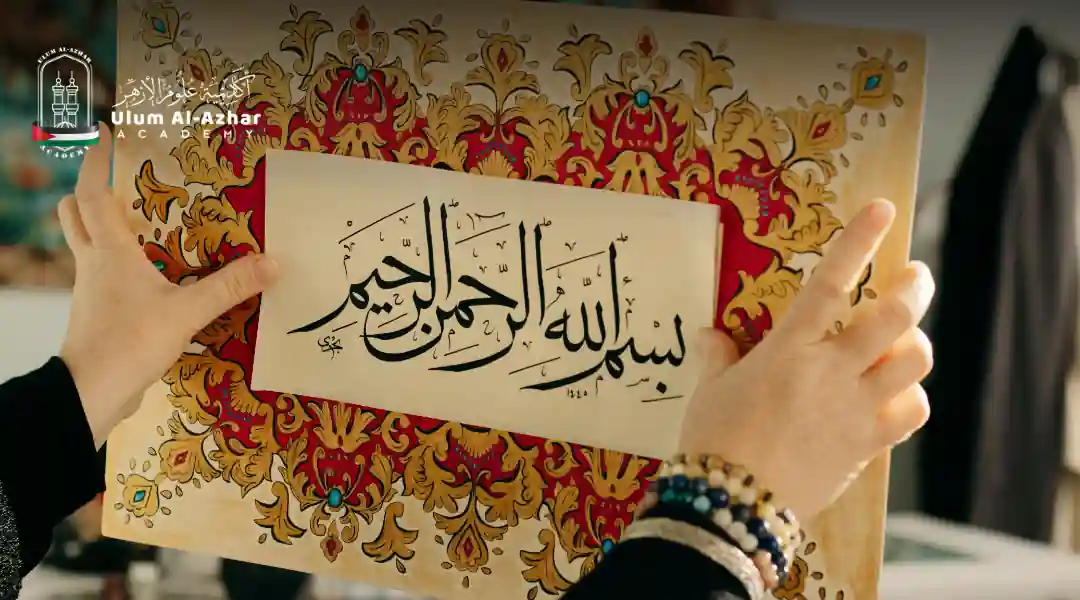 ULUM AL-AZHAR
ACADEMY
أكاديمية علوم الأزهر
Ulum Al-Azhar
ACADEMY
بِسْمِ اللهِ الرَّحْمنِ الرَّحِيمِ
١٤٤٥